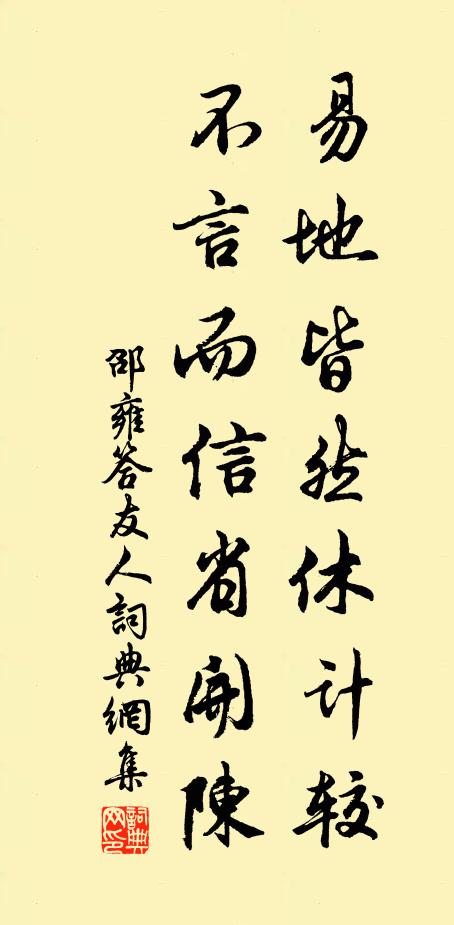 易地皆然休计较
不言而信省開陳
邵雍答友人詞典網集
詞典網印